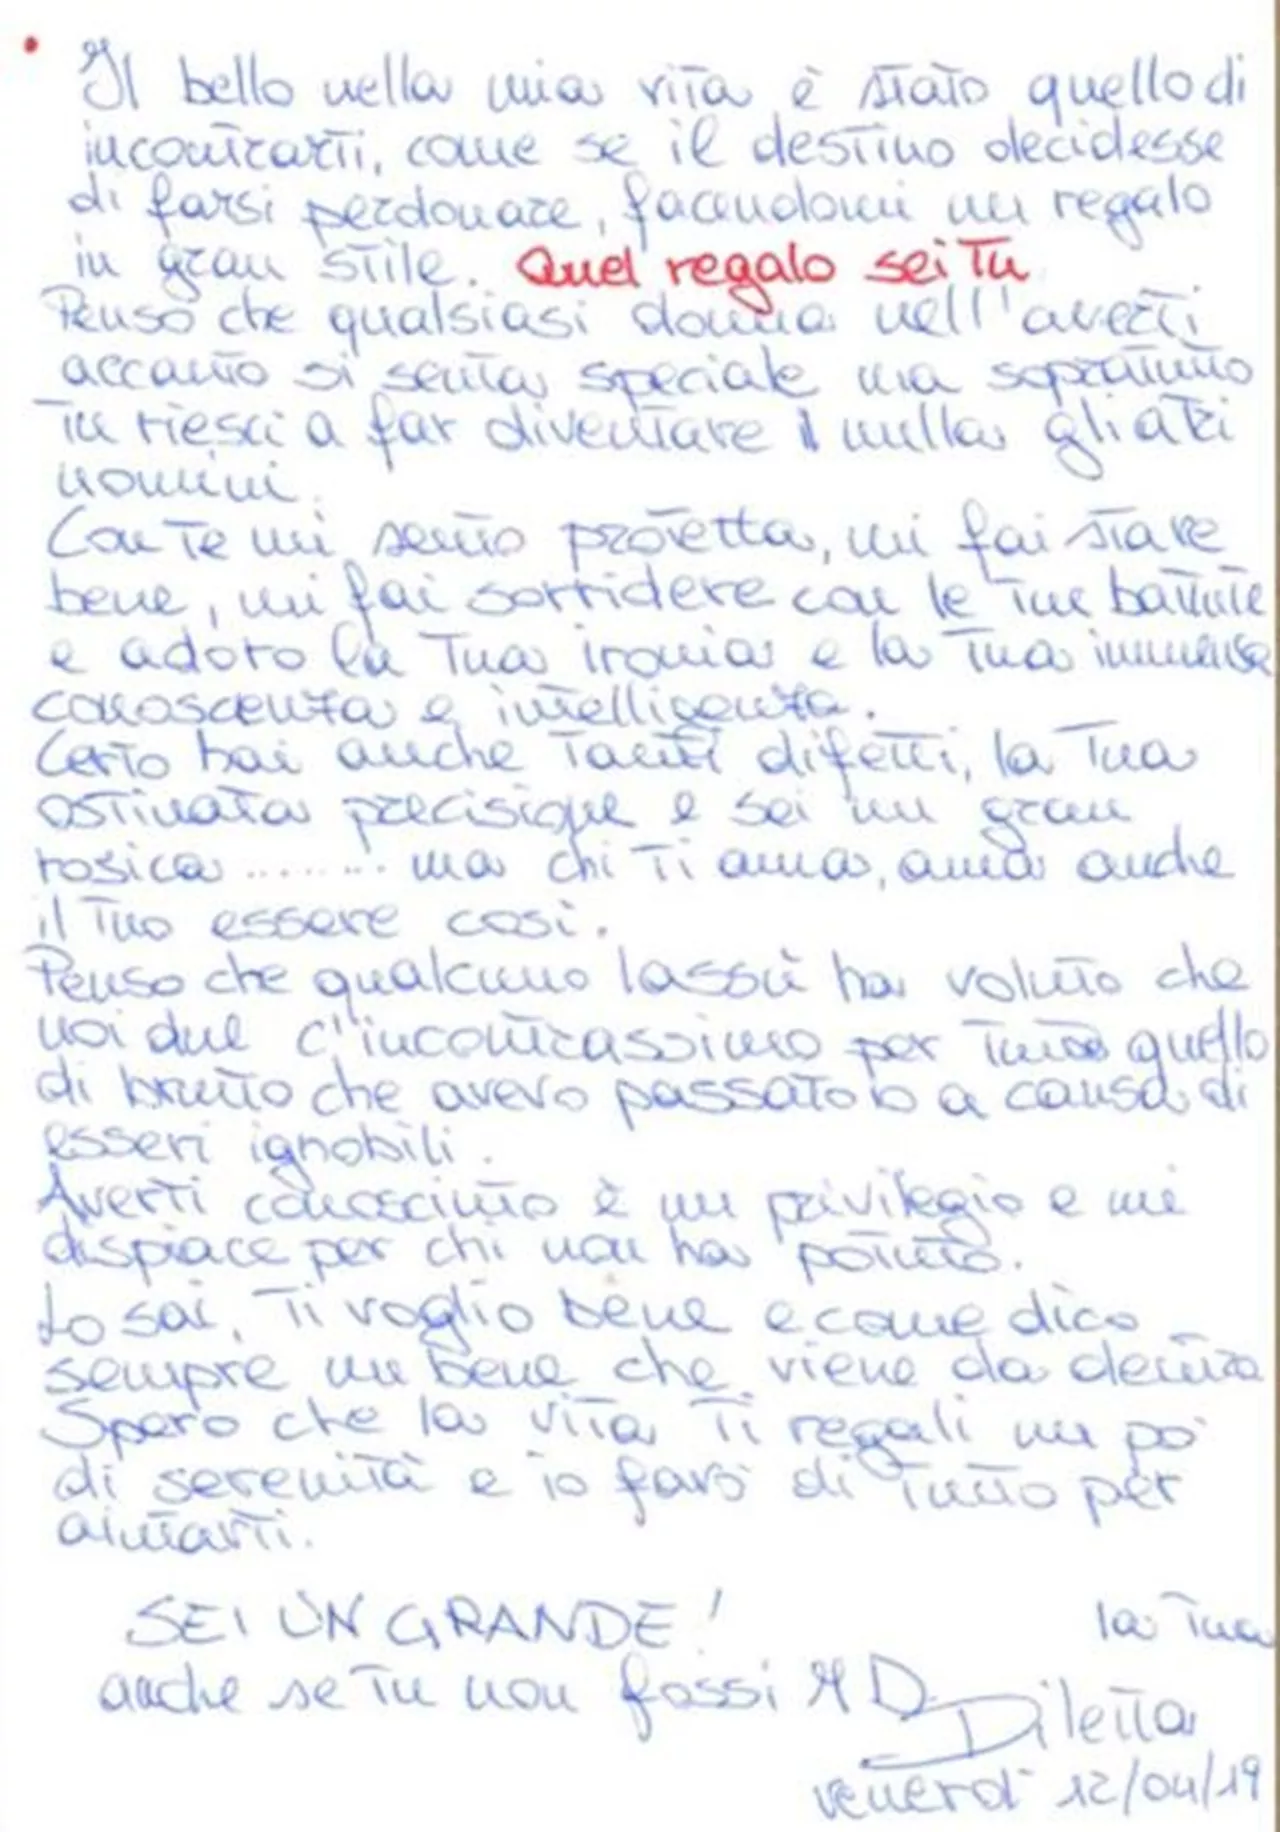 Il bello nella mia vita è stato quello di
incontrarti, come se il destino decidesse
di farsi perdonare, facendomi un regalo
in gran stile. Quel regalo sei Tu
Penso che qualsiasi donna nell'averti
accanto si senta speciale ma sopratutto
Tu riesci a far diventare nulla gli altri
uomini.
Con Te mi sento protetta, mi fai stare
bene, mi fai sorridere con le Tue battute
e adoro la Tua ironia e la Tua immensa
conoscenza e intelligenza.
Certo hai anche Tanti difetti, la Tua
ostinata precisione e sei un gran
rosica ........ ma chi Ti ama, ama anche
il Tuo essere così.
Penso che qualcuno lassù ha voluto che
noi due c'incontrassimo per tutto quello
di brutto che avevo passato a causa di
esseri ignobili.
Averti conosciuto è un privilegio e mi
dispiace per chi non ha potuto.
Lo sai, Ti voglio bene e come dico
sempre un bene che viene da dentro
Spero che la vita Ti regali un pò
di serenità e io farò di Tutto per
aiutarti.
SEI UN GRANDE! la Tua
anche se Tu non fossi D.
Diletta
venerdì 12/04/19